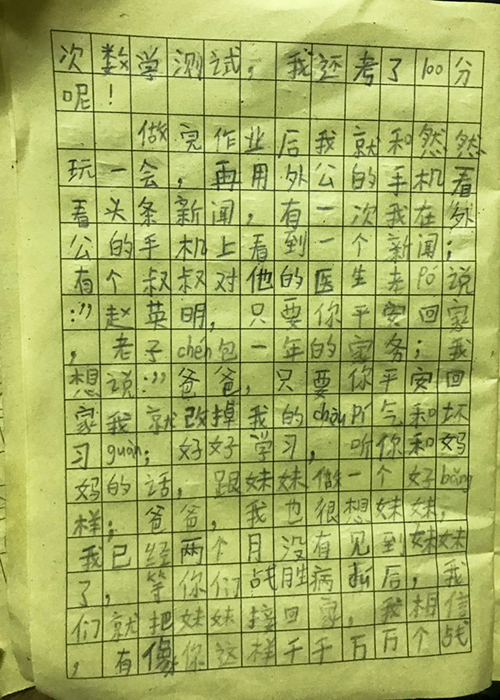 次数学测试，我还考了100分
呢！
做完作业后我就和然然
玩一会，再用外公的手机看
看头条新闻，有一次我在外
公的手机上看到一个新闻；
有个叔叔对他的医生老Pó说
：”赵英明，只要你平安回家
，老子chén包一年的家务；我
想说：”爸爸，只要你平安回
家我就改掉我的chòuPí气和坏
习guàn；好好学习，听你和妈
妈的话，跟妹妹做一个好bǎng
样；爸爸，我也很想妹妹，
我已经两个月没有见到妹妹
了，等你们战胜病后，我
们就把妹妹接回家，我相信
，有像你这样千千万万个战